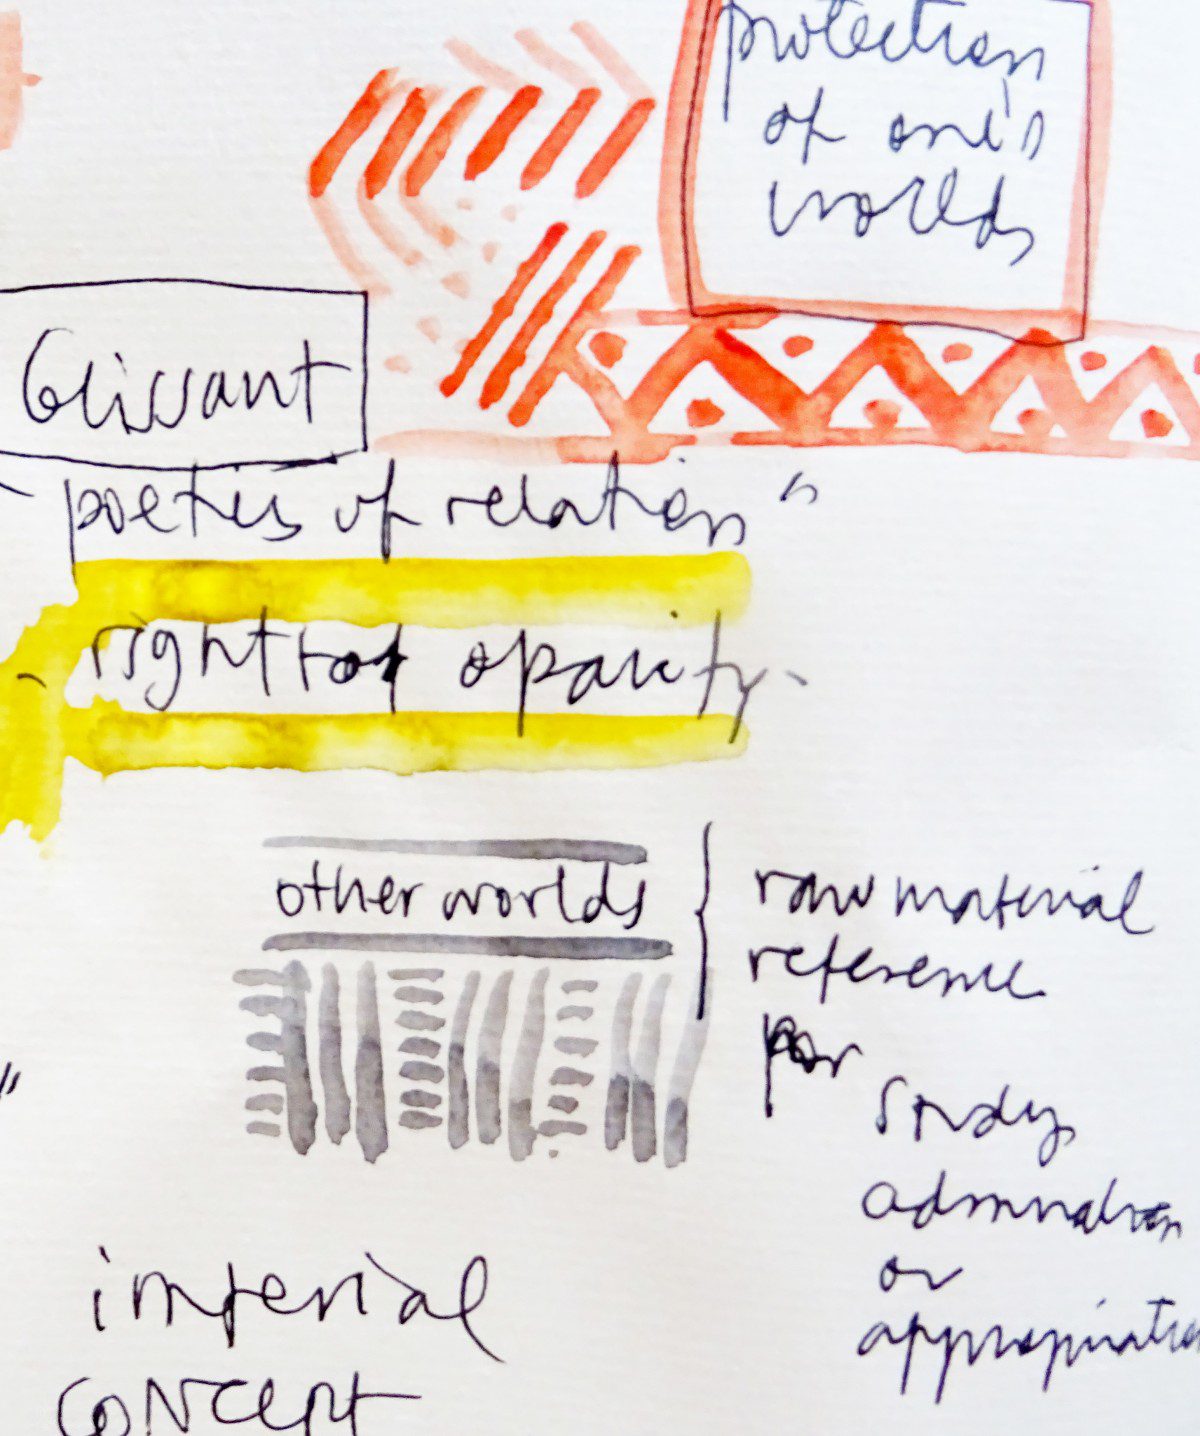 protection
of one's
worlds
Glissant
"poetics of relation"
right to opacity
other worlds
raw material
reference
for
study
admiration
or
appropriation
imperial
concept